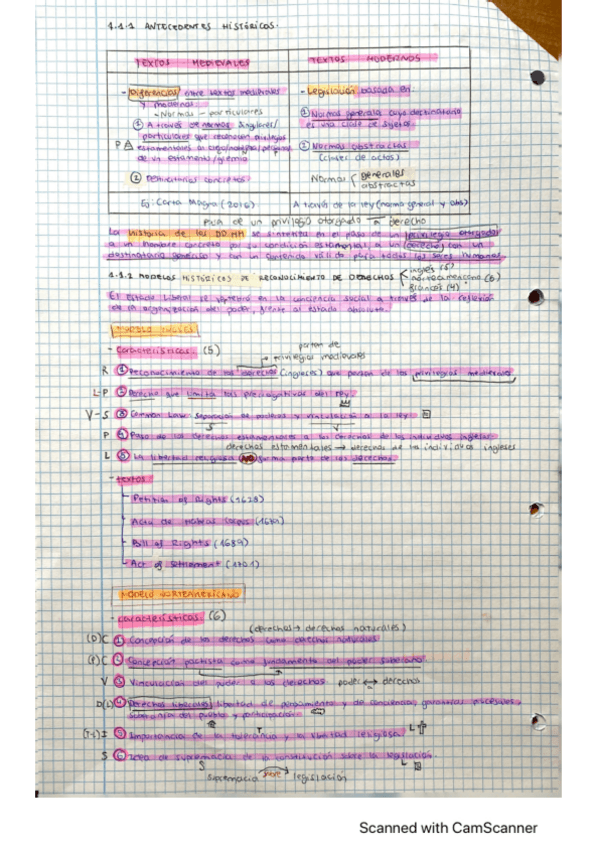 1.1.1 ANTECEDENTES HISTÓRICOS.
TEXTOS MEDIEVALES
TEXTOS MODERNOS
- Diferencias entre textos medievales
y modernos
- Normas - particulares
① A través de normas singulares/
particulares que reconocen privilegios
estamentales al
de un estamento/gremio
② Destinatarios concretos.
Ej: Carta Magna (2016)
- Legislación basada en:
① Normas generales cuyo destinatario
es una clase de sujetos
② Normas abstractas
(clases de actos)
Normas generales
abstractas
A través de la ley (norma general y abs)
PASA de un privilegio otorgado a derecho
La historia de los DD.HH se sintetiza en el paso de un privilegio otorgado
a un hombre concreto por su condición estamental, a un derecho con un
destinatario genérico y con un contenido válido para todos los seres humanos.
1.1.2 MODELOS HISTÓRICOS DE RECONOCIMIENTO DE DERECHOS
inglés (5)
norteamericano (6)
francés (4)
El Estado liberal se vertebra en la conciencia social a través de la reflexión
de la organización del poder, frente al estado absoluto.
- MODELO INGLÉS
- Características. (5)
parten de
privilegios medievales
R ① Reconocimiento de los derechos (ingleses) que parten de los privilegios medievales
L-P ② Derecho que limita las prerrogativas del rey.
V-S ③ Common Law: separación de poderes y vinculación a la ley
S V
P ④ Paso de los derechos estamentales a los derechos de los individuos ingleses
derechos estamentales → derechos de los individuos ingleses
L ⑤ La libertad religiosa NO forma parte de los derechos.
- textos
Petition of Rights (1628)
Acta de Habeas Corpus (1679)
Bill of Rights (1689)
Act of Settlement (1701)
MODELO NORTEAMERICANO
- características. (6)
(derechos → derechos naturales)
(D)C ① Concepción de los derechos como derechos naturales
(P)C ② Concepción pactista como fundamento del poder soberano.
V ③ Vinculación del poder a los derechos poder ↔ derechos
D(L) ④ Derechos liberales: libertad de pensamiento y de conciencia, garantías procesales,
soberanía del pueblo y participación.
(T-L)I ⑤ Importancia de la tolerancia y la libertad religiosa.
T L
S ⑥ Idea de supremacía de la constitución sobre la legislación.
S L
supremacía sobre legislación
Scanned with CamScanner